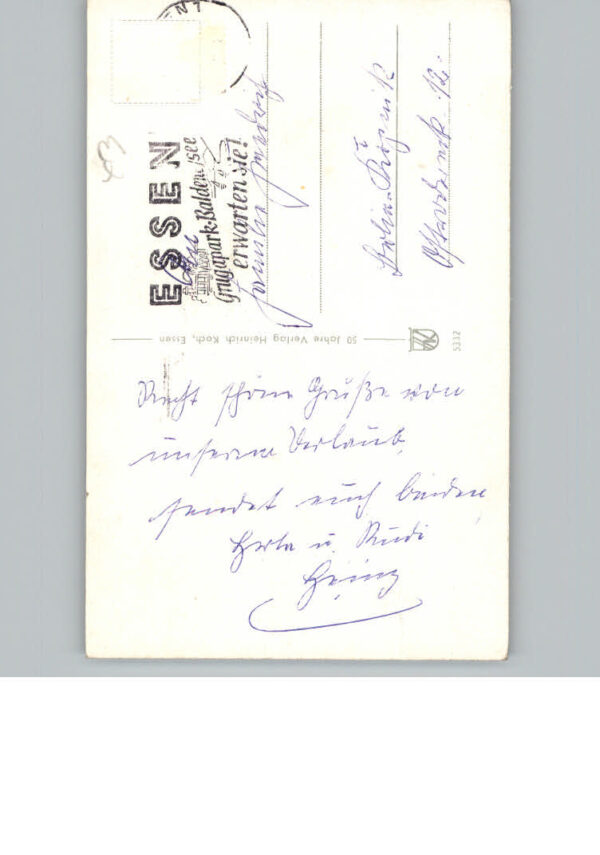 Recht schöne Grüße von
unserem Urlaub
sendet euch beiden
Herta u. Rudi
Heinz
ESSEN
Grugapark-Baldeneysee
erwarten Sie!
Familie
Berlin-Köpenick
12
50 Jahre Verlag Heinrich Koch, Essen
5332
43